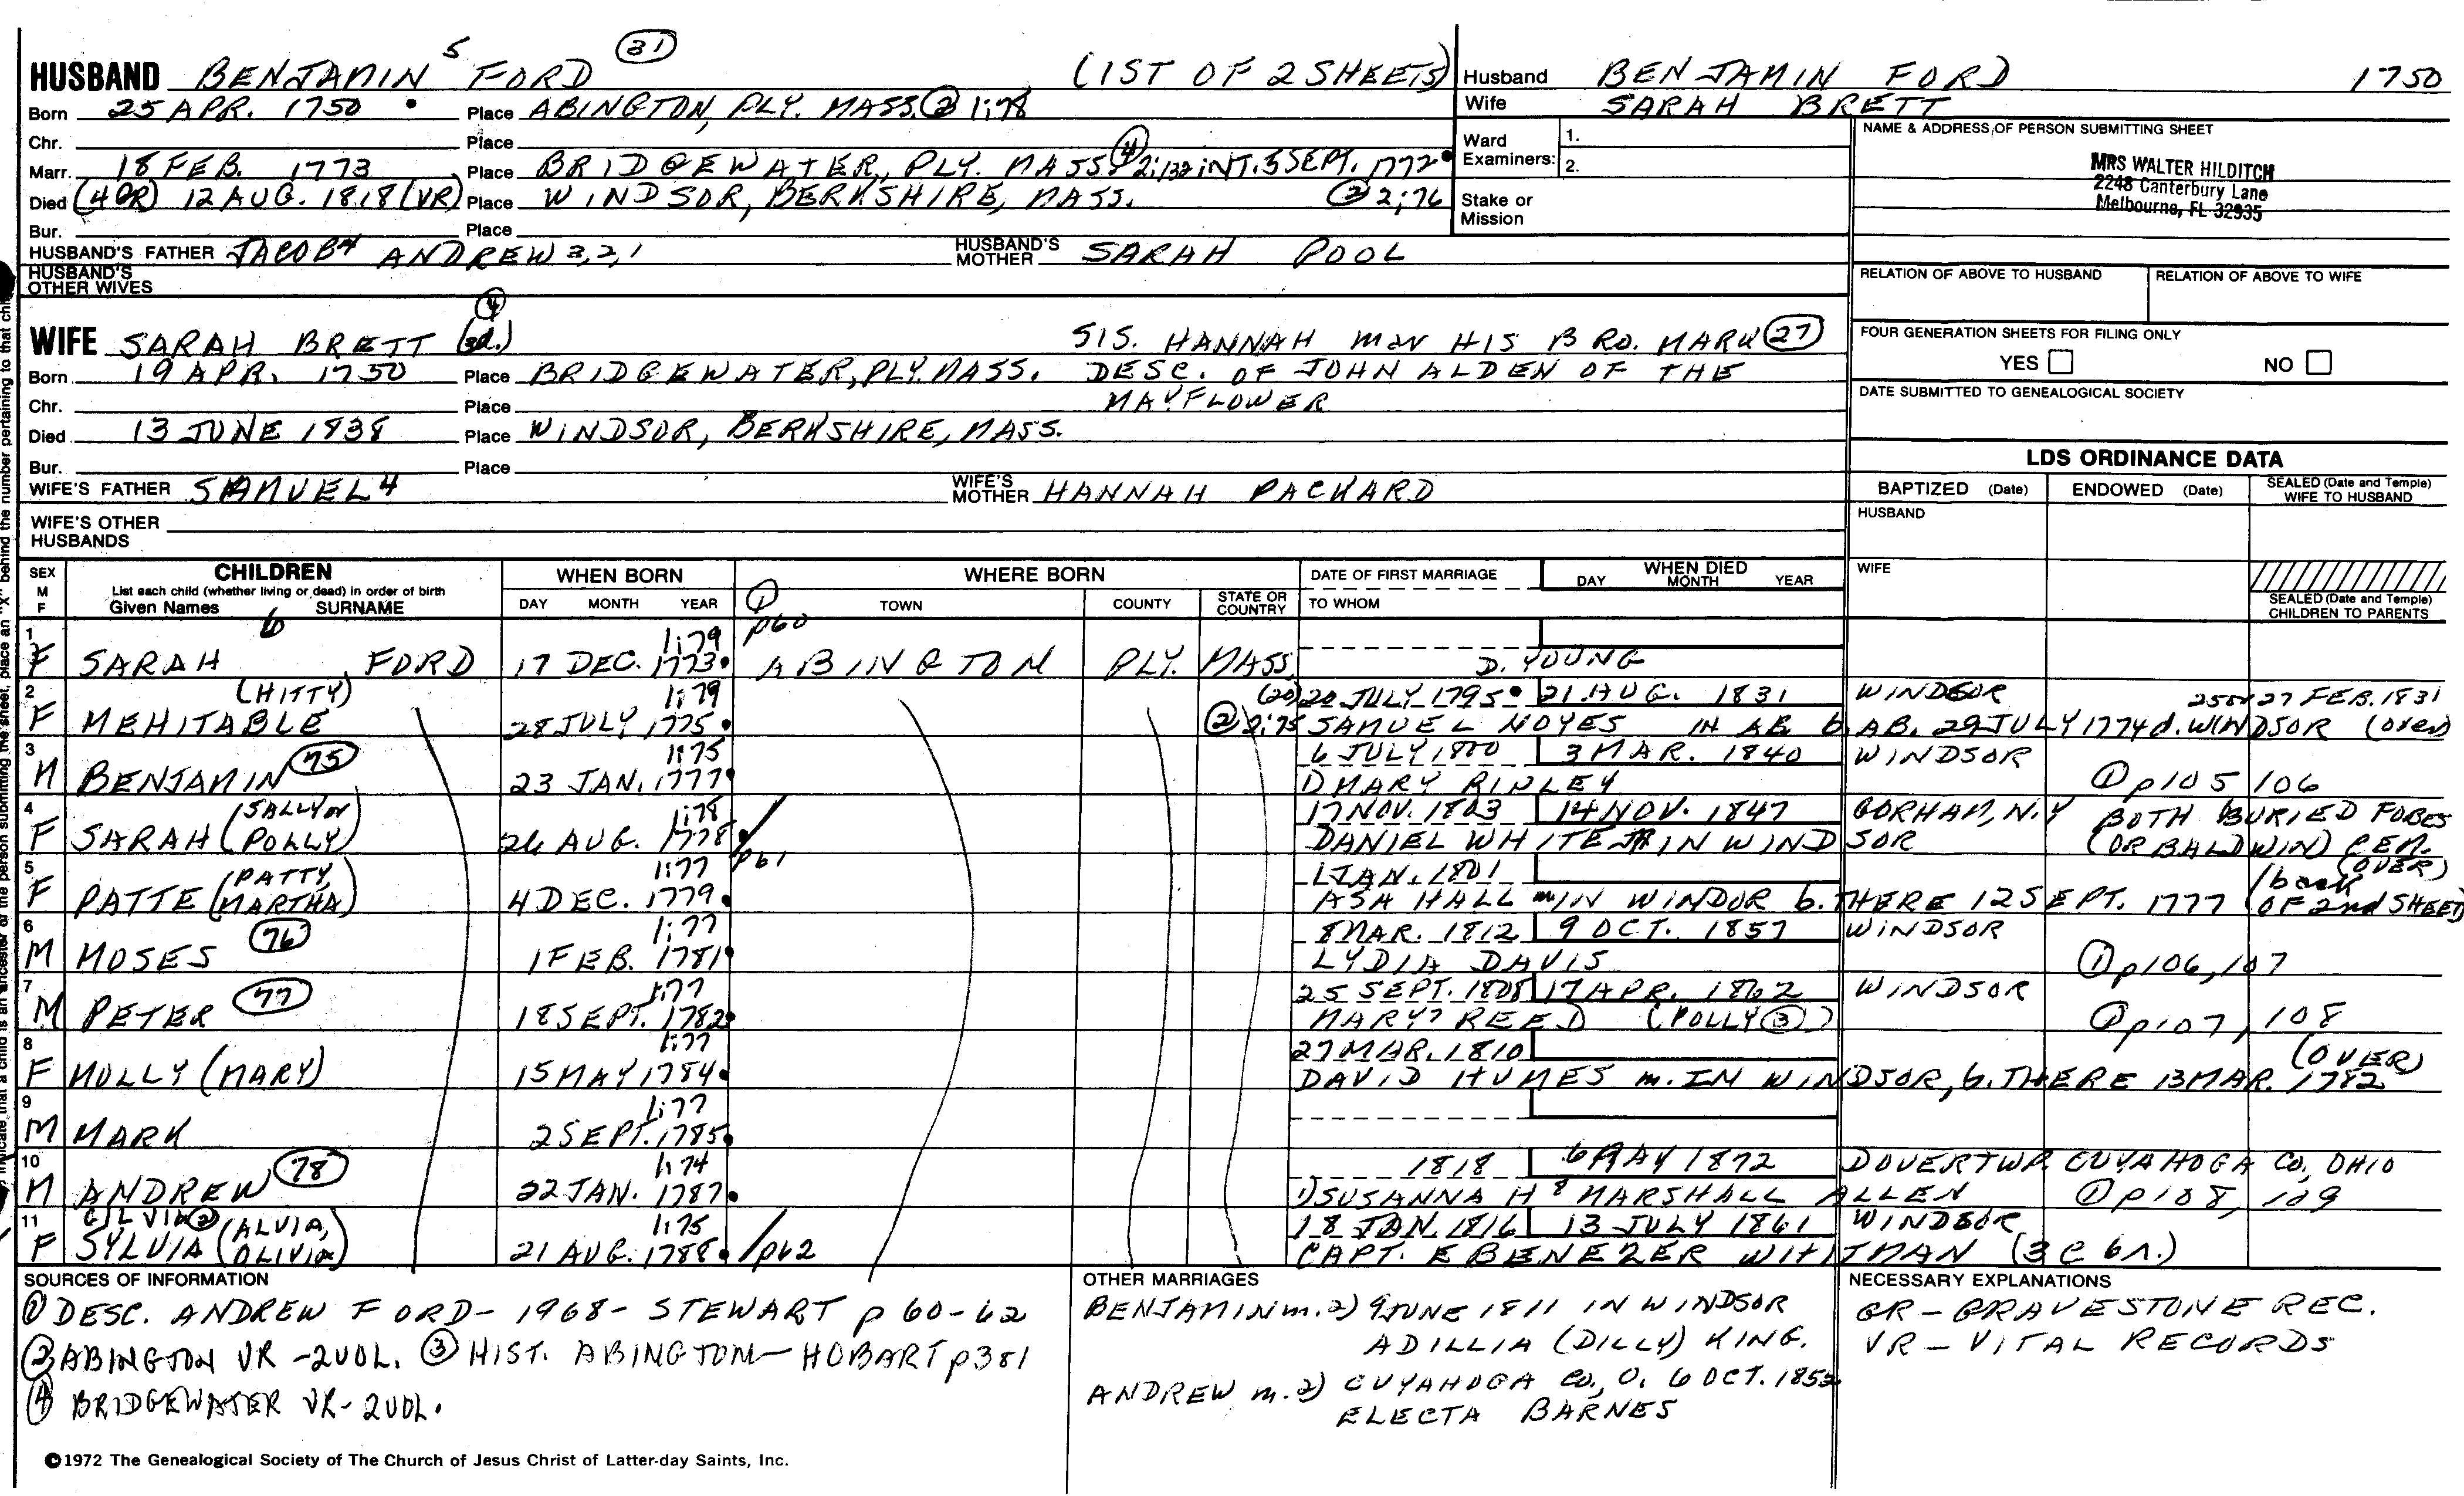 HUSBAND BENJAMIN 5 FORD (31) (1ST OF 2 SHEETS)
Born 25 APR. 1750 Place ABINGTON, PLY. MASS. (2) 1:78
Chr. Place
Marr. 18 FEB. 1773 Place BRIDGEWATER, PLY. MASS. (4) 2:132 INT. 5 SEPT. 1772
Died (4 GR) 12 AUG. 1818 (VR) Place WINDSOR, BERKSHIRE, MASS. (2) 2:76
Bur. Place
HUSBAND'S FATHER JACOB 4 ANDREW 3,2,1 HUSBAND'S MOTHER SARAH POOL
HUSBAND'S OTHER WIVES
Husband BENJAMIN FORD 1750
Wife SARAH BRETT
Ward Examiners: 1.
2.
Stake or Mission
NAME & ADDRESS OF PERSON SUBMITTING SHEET
MRS WALTER HILDITCH
2248 Canterbury Lane
Melbourne, FL 32935
RELATION OF ABOVE TO HUSBAND RELATION OF ABOVE TO WIFE
FOUR GENERATION SHEETS FOR FILING ONLY
YES NO
DATE SUBMITTED TO GENEALOGICAL SOCIETY
WIFE SARAH BRETT (4) SIS. HANNAH mar HIS BRO. MARK (27)
Born 19 APR. 1750 Place BRIDGEWATER, PLY. MASS. DESC. OF JOHN ALDEN OF THE
Chr. Place MAYFLOWER
Died 13 JUNE 1838 Place WINDSOR, BERKSHIRE, MASS.
Bur. Place
WIFE'S FATHER SAMUEL 4 WIFE'S MOTHER HANNAH PACKARD
WIFE'S OTHER HUSBANDS
LDS ORDINANCE DATA
BAPTIZED (Date) ENDOWED (Date) SEALED (Date and Temple) WIFE TO HUSBAND
HUSBAND
WIFE
SEALED (Date and Temple) CHILDREN TO PARENTS
SEX M F CHILDREN WHEN BORN WHERE BORN DATE OF FIRST MARRIAGE WHEN DIED
List each child (whether living or dead) in order of birth DAY MONTH YEAR
Given Names SURNAME DAY MONTH YEAR (1) TOWN COUNTY STATE OR COUNTRY TO WHOM
1 6 1:79 p60
F SARAH FORD 17 DEC. 1773 ABINGTON PLY. MASS. D. YOUNG
2 (HITTY) 1:79 (20) 20 JULY 1795 21 AUG. 1831 WINDSOR 27 FEB. 1831
F MEHITABLE 28 JULY 1775 (2) 2:75 SAMUEL NOYES IN AB b AB. 29 JULY 1774 d. WINDSOR (over)
3 (75) 1:75 6 JULY 1800 3 MAR. 1840 WINDSOR
M BENJAMIN 23 JAN. 1777 1) MARY RIPLEY (1) p105 106
4 (SALLY or 1:78 17 NOV. 1803 14 NOV. 1847 GORHAM, N.Y BOTH BURIED FOBES
F SARAH (POLLY) 26 AUG. 1778 DANIEL WHITE IN WINDSOR (OR BALDWIN) CEM.
5 (PATTY, 1:77 p61 1 JAN. 1801 (OVER)
F PATTE (MARTHA) 4 DEC. 1779 ASA HALL m IN WINDOR b. THERE 12 SEPT. 1777 (back OF 2nd SHEET)
6 (76) 1:77 8 MAR. 1812 9 OCT. 1857 WINDSOR
M MOSES 1 FEB. 1781 LYDIA DAVIS (1) p106, 107
7 (77) 1:77 25 SEPT. 1808 17 APR. 1862 WINDSOR
M PETER 18 SEPT. 1782 MARY? REED (POLLY (3)) (1) p107, 108
8 1:77 27 MAR. 1810 (OVER)
F MOLLY (MARY) 15 MAY 1784 DAVID HUMES m. IN WINDSOR, b. THERE 13 MAR. 1782
9 1:77
M MARK 2 SEPT. 1785
10 (78) 1:74 1818 6 MAY 1872 DOVER TWP. CUYAHOGA CO, OHIO
M ANDREW 22 JAN. 1787 1) SUSANNA H 8 MARSHALL ALLEN (1) p108, 109
11 SILVIA (2) (ALVIA, 1:75 18 JAN. 1816 13 JULY 1861 WINDSOR
F SYLVIA (OLIVIA) 21 AUG. 1788 p62 CAPT. EBENEZER WHITMAN (3 C 6 1.)
SOURCES OF INFORMATION
(1) DESC. ANDREW FORD - 1968 - STEWART p 60-62
(2) ABINGTON VR - 2 VOL. (3) HIST. ABINGTON - HOBART p381
(4) BRIDGEWATER VR - 2 VOL.
OTHER MARRIAGES
BENJAMIN m. 2) 9 JUNE 1811 IN WINDSOR
ADILLIA (DILLY) KING.
ANDREW m. 2) CUYAHOGA CO, O. 6 OCT. 1852
ELECTA BARNES
NECESSARY EXPLANATIONS
GR - GRAVESTONE REC.
VR - VITAL RECORDS
©1972 The Genealogical Society of The Church of Jesus Christ of Latter-day Saints, Inc.